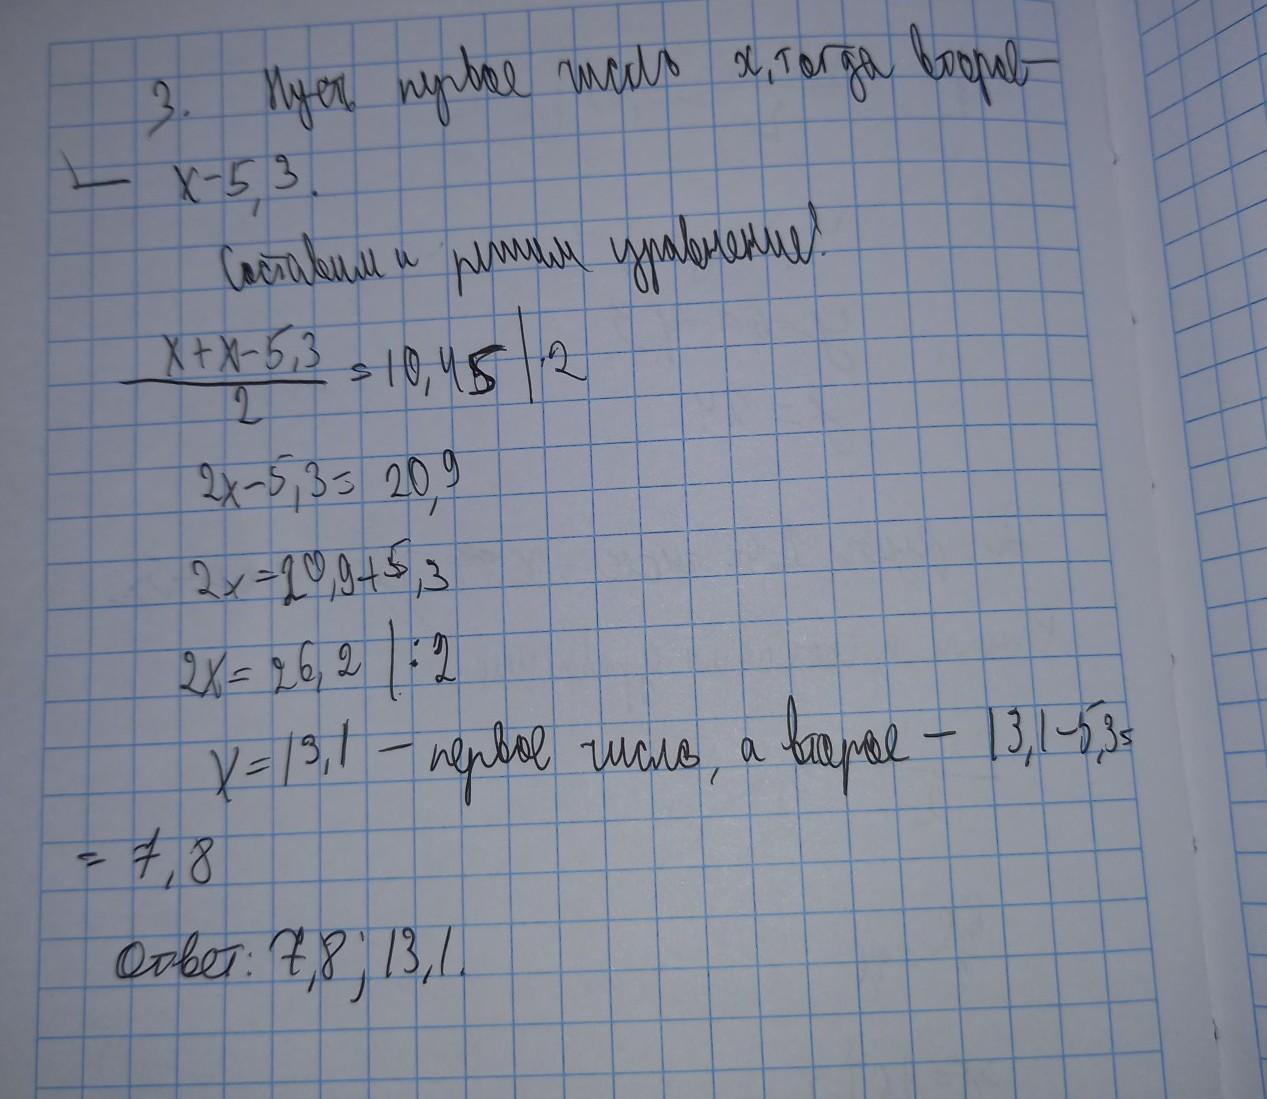 3. Пусть первое число x, тогда второе –
– x-5,3.
Составим и решим уравнение:
\frac{x+x-5,3}{2} = 10,45 |·2
2x-5,3= 20,9
2x=20,9+5,3
2x= 26,2 |:2
x=13,1 – первое число, а второе – 13,1-5,3=
= 7,8
Ответ: 7,8; 13,1.